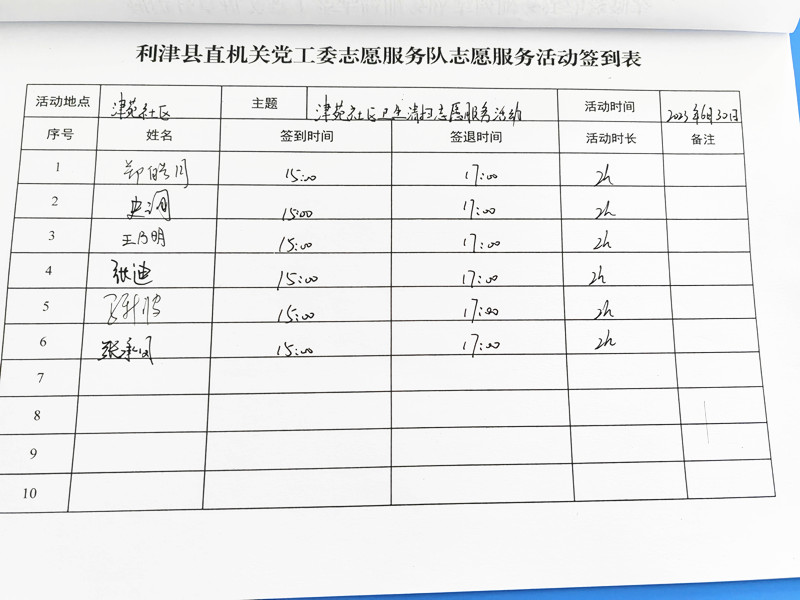 利津县直机关党工委志愿服务队志愿服务活动签到表
活动地点 津苑社区 主题 津苑社区卫生清扫志愿服务活动 活动时间 2023年6月30日
序号 姓名 签到时间 签退时间 活动时长 备注
1 15:00 17:00 2h
2 15:00 17:00 2h
3 王乃明 15:00 17:00 2h
4 张迪 15:00 17:00 2h
5 15:00 17:00 2h
6 张承凤 15:00 17:00 2h
7
8
9
10